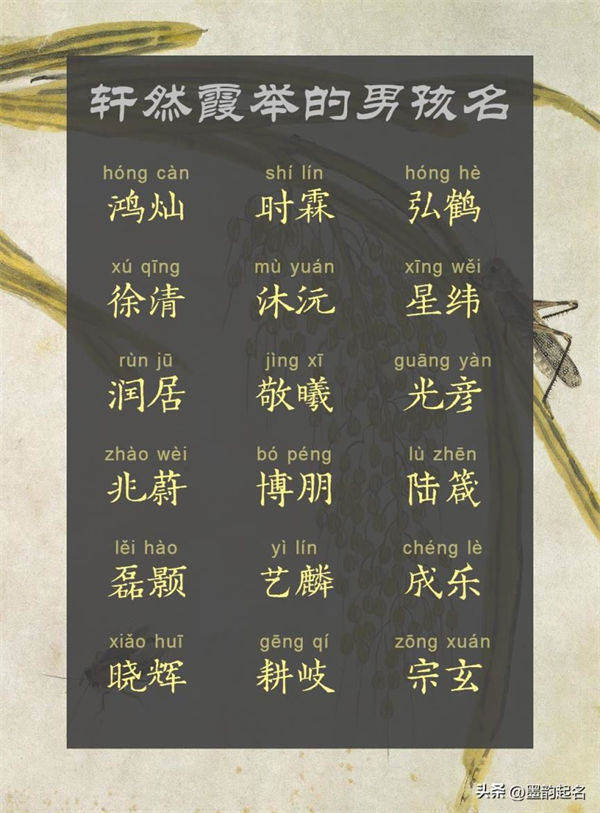 轩然霞举的男孩名
hóng càn shí lín hóng hè
鸿灿 时霖 弘鹤
xú qīng mù yuán xīng wěi
徐清 沐沅 星纬
rùn jū jìng xī guāng yàn
润居 敬曦 光彦
zhào wèi bó péng lù zhēn
兆蔚 博朋 陆箴
lěi hào yì lín chéng lè
磊颢 艺麟 成乐
xiǎo huī gēng qí zōng xuán
晓辉 耕岐 宗玄
头条 @墨韵起名